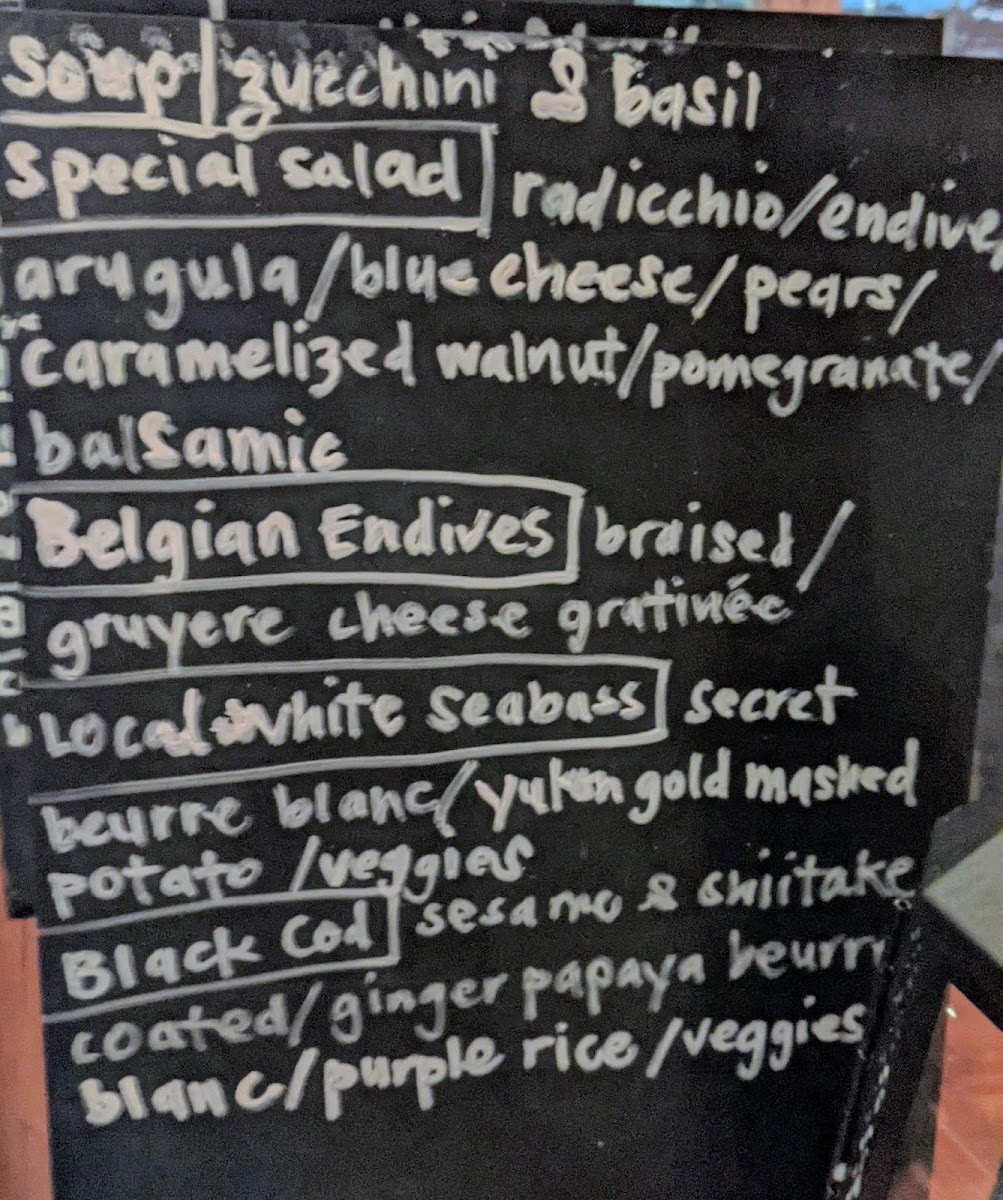 Soup | zucchini & basil
special salad radicchio/endive/
arugula/blue cheese/pears/
caramelized walnut/pomegranate/
balsamic
Belgian Endives braised/
gruyere cheese gratinée
Local white seabass secret
beurre blanc/yukon gold masked
potato/veggies
Black Cod sesame & shiitake
coated/ginger papaya beurre
blanc/purple rice/veggies